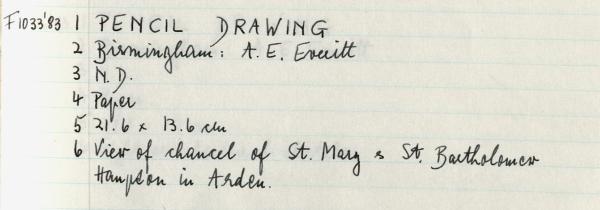 F1033'83 1 PENCIL DRAWING
2 Birmingham: A. E. Everitt
3 N.D.
4 Paper
5 21.6 x 13.6 cm
6 View of chancel of St. Mary & St. Bartholomew
Hampton in Arden.